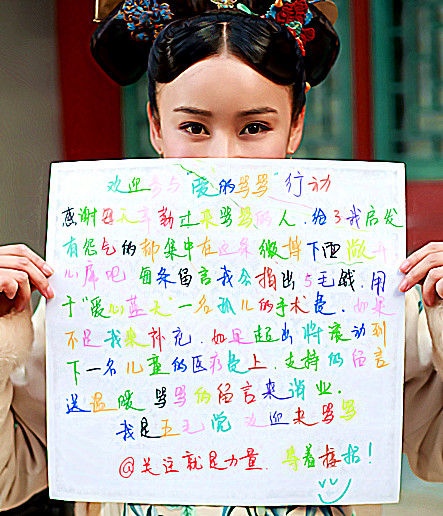 欢迎参与"爱的骂骂"行动
感谢每天辛勤过来骂骂的人.给了我启发
有怨气的都集中在这条微博下面做开
心库吧 每条留言我会捐出5毛钱.用
于"爱心蓝天"一名孤儿的手术费.如果
不足我来补充.如果超出将滚动到
下一名儿童的医疗费上.支持的留言
送温暖 骂骂的留言来消业.
我是五毛党 欢迎来骂骂
@关注就是力量. 等着接招!